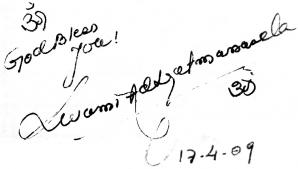 ॐ
God Bless
you!
Swami
ॐ
17-4-09